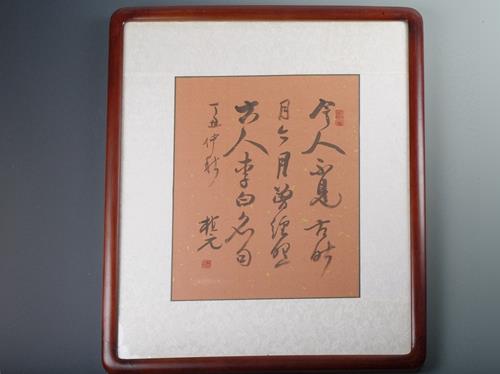 今人不見古時
月今月曾經照
古人李白名句
丁丑仲秋
植元